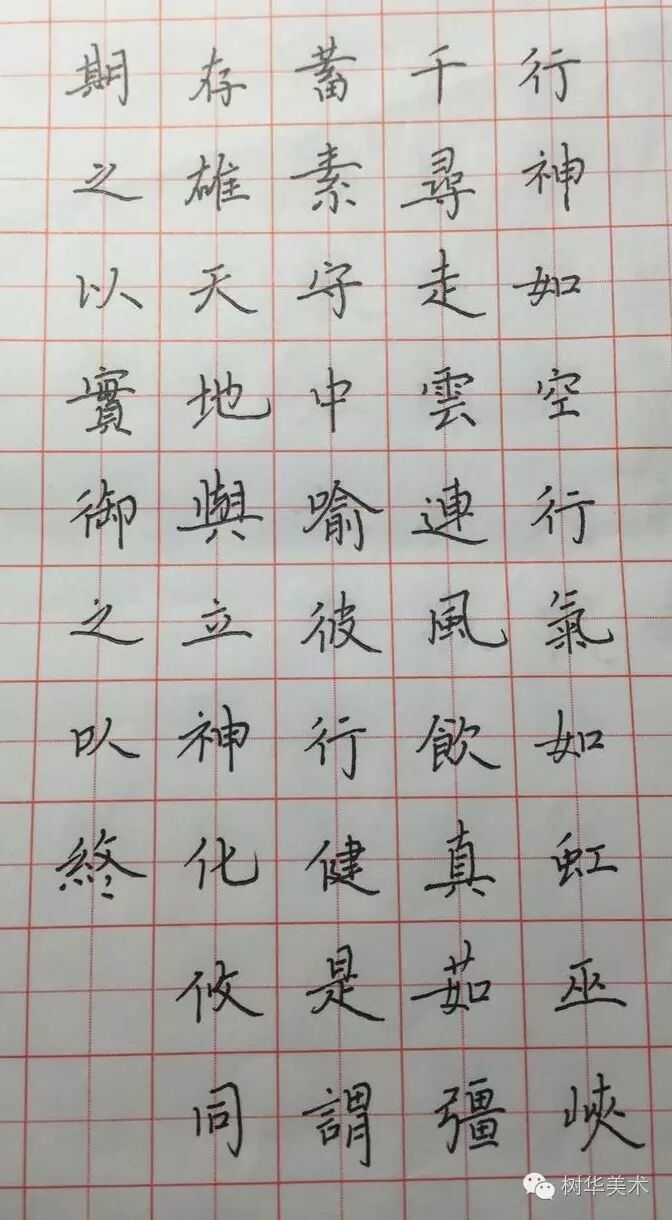 行神如空行氣如虹巫峽
千尋走雲連風飲真茹彊
蓄素守中喻彼行健是謂
存雄天地與立神化攸同
期之以實御之以終
树华美术